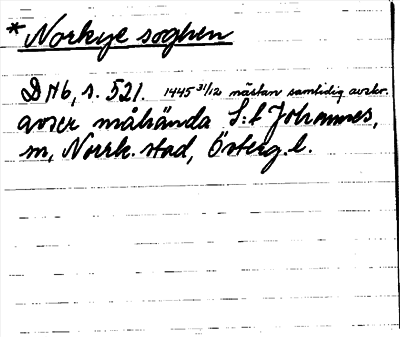 * Norkye soghen
DN6, s. 521. 1445 31/12 nästan samtidig avskr.
avser måhända S:t Johannes,
sn, Norrk. stad, Österg. l.